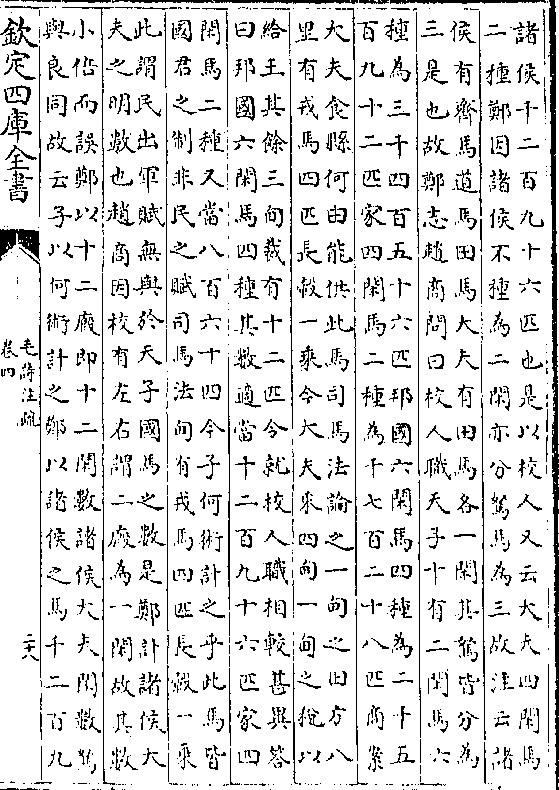 諸侯千二百九十六匹也是以校人又云大夫四閑馬
二種鄭因諸侯不種為二閑亦分駑馬為三故注云諸
侯有齊馬道馬田馬大夫有田馬各一閑其駑皆分為
三是也故鄭志趙商問曰校人職天子十有二閑馬六
種為三千四百五十六匹邦國六閑馬四種為二十五
百九十二匹家四閑馬二種為千七百二十八匹商案
大夫食縣何由能供此馬司馬法論之一甸之田方八
里有戎馬四匹長轂一乘今大夫采四甸一甸之稅以
給王其餘三甸裁有十二匹今就校人職相較甚異答
曰邦國六閑馬四種其數適當十二百九十六匹家四
閑馬二種又當八百六十四今子何術計之乎此馬皆
國君之制非民之賦司馬法甸有戎馬四匹長轂一乘
此謂民出軍賦無與於天子國馬之數是鄭計諸侯大
夫之明數也趙商因校有左右謂二廄為一閑故其數
小倍而誤鄭以十二廄即十二閑數諸侯大夫閑數駑
與良同故云子以何術計之鄭以諸侯之馬千二百九
欽定四庫全書
毛詩注疏
卷四
二六